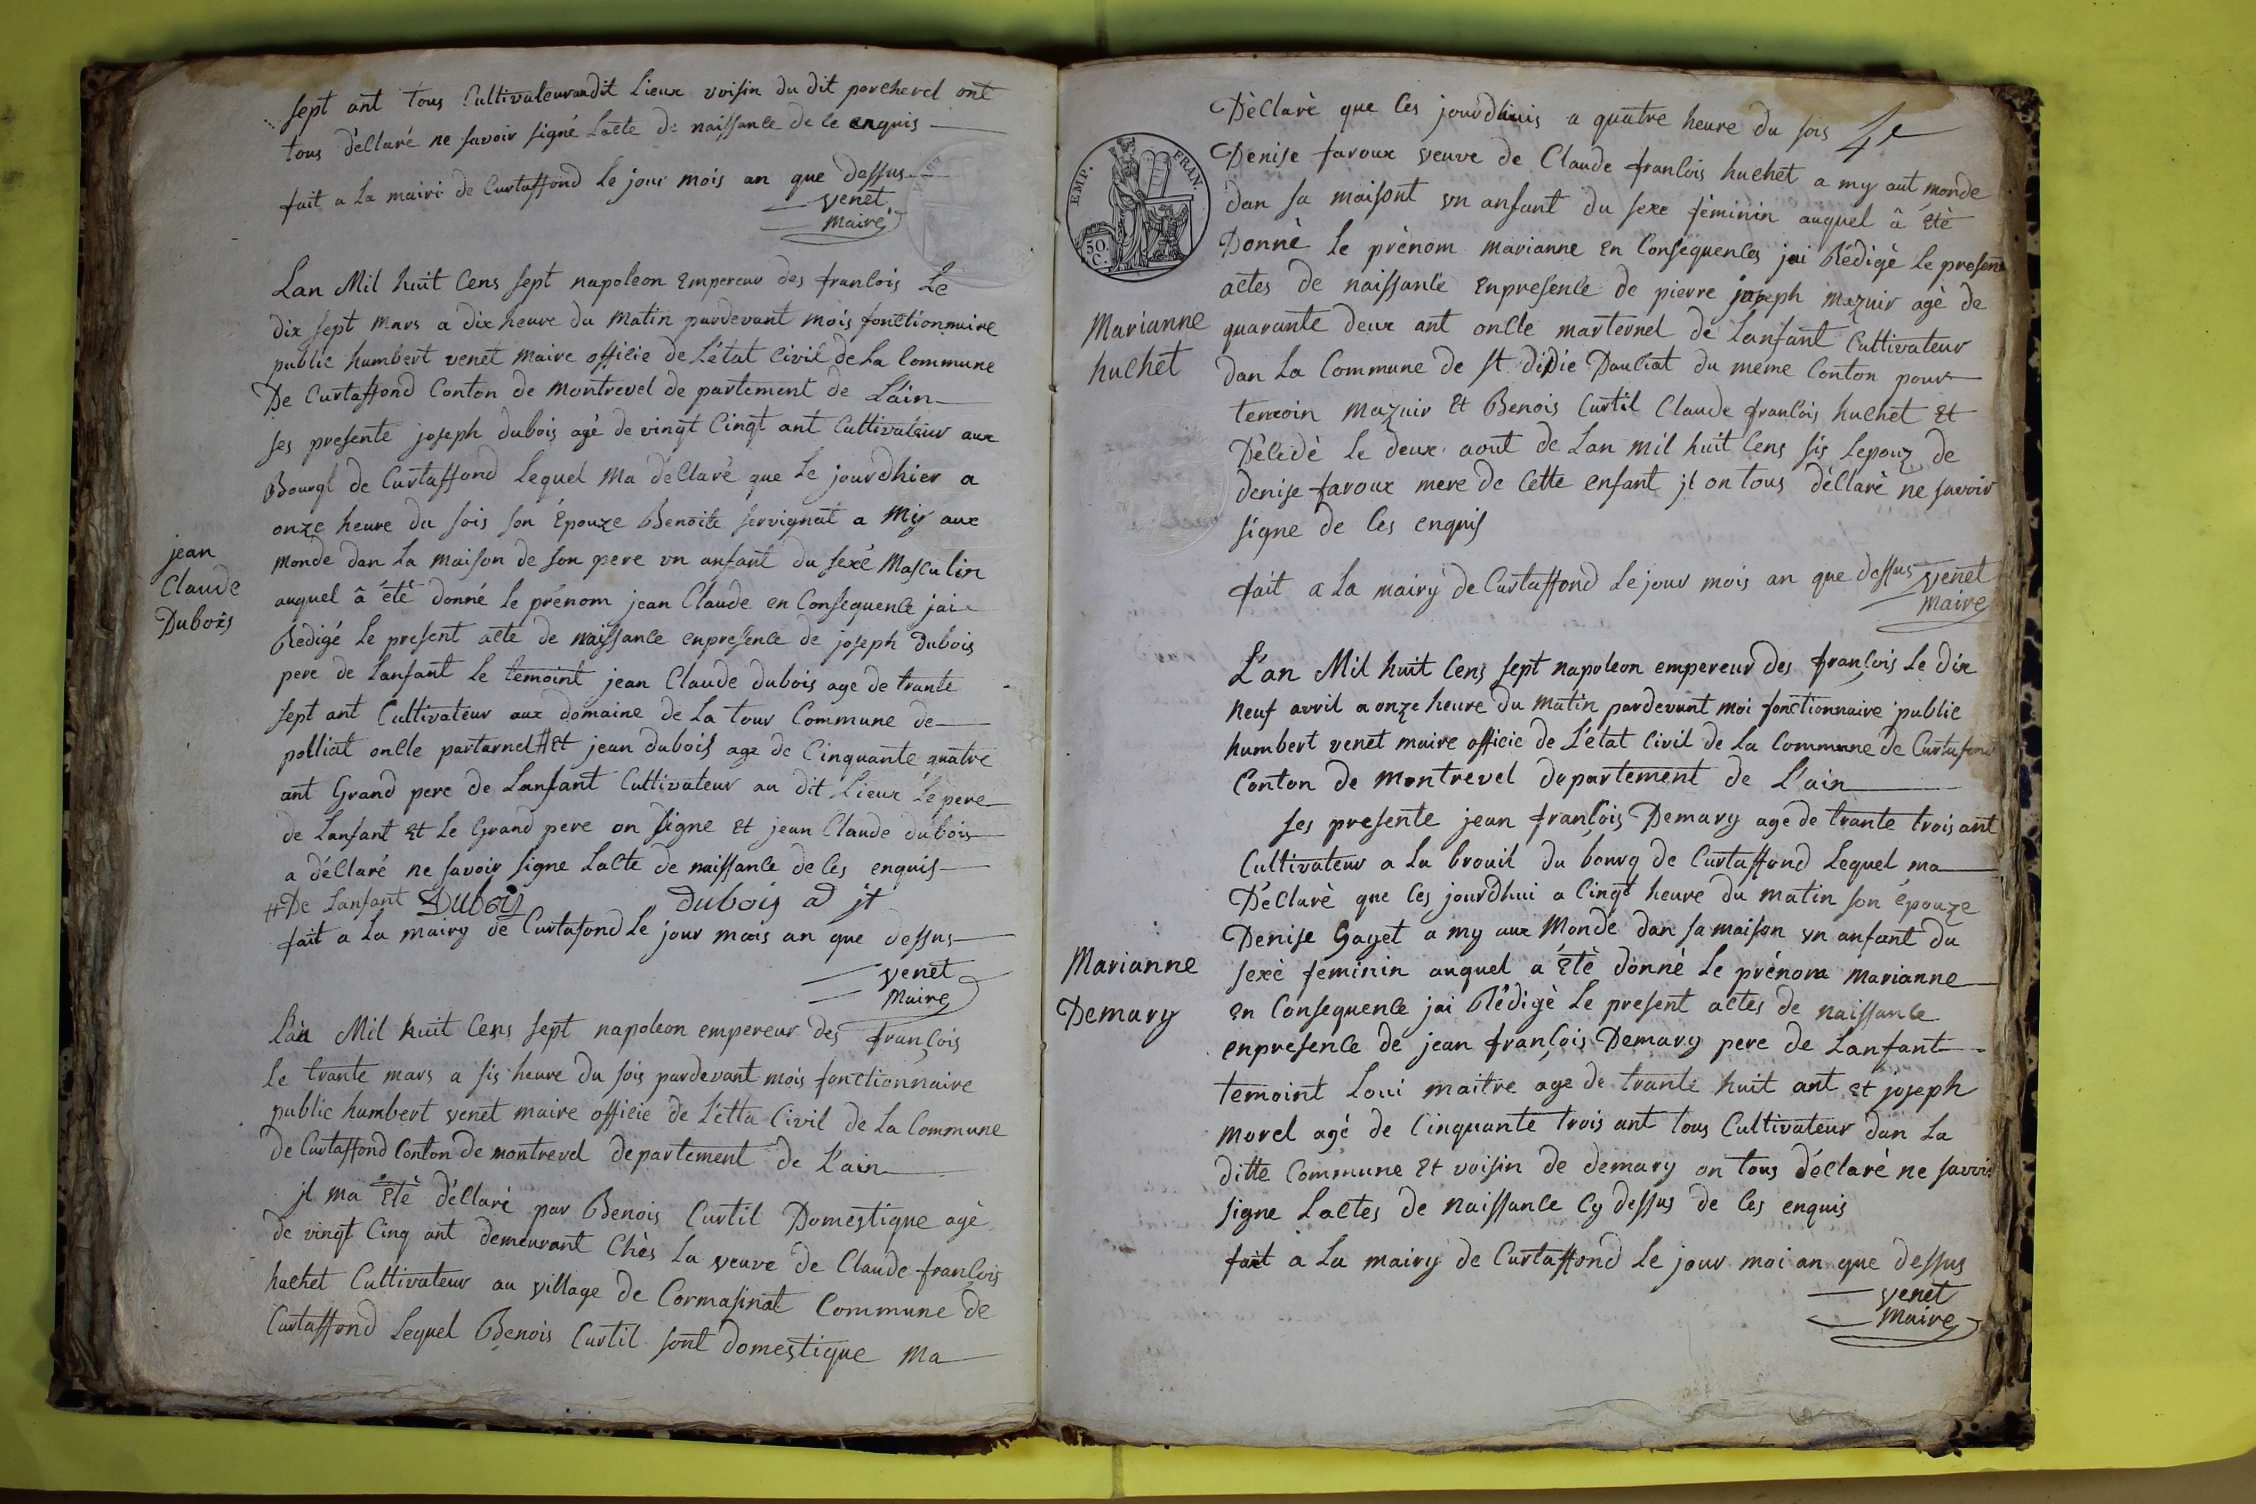 sept ant tous Cultivateur audit Lieux voisin du dit percherel ont
tous déclaré ne savoir signé Lacte de naissance de ce enquis
fait a La mairi de Curtaffond Le jour mois an que dessus
venet
Maire
Lan Mil huit Cens sept napoleon Empereur des francois Le
dix sept mars a dix heure du Matin pardevant mois fonctionnaire
public humbert venet Maire officie de L'état Civil de La Commune
De Curtaffond Conton de Montrevel departement de L'ain
ses presente joseph dubois agé de vingt Cinqt ant Cultivateur aux
Bourgt de Curtaffond Lequel Ma déClaré que Le jourdhier a
onze heure du sois son Épouze Benoite servignat a Mis aux
Monde dan La Maison de son pere vn anfant du sexé Masculin
auquel â été donné Le prénom jean Claude en Consequence jai
Redigé Le present acte de naissance enpresence de joseph Dubois
pere de Lanfant Le temoint jean Claude dubois age de trante
sept ant Cultivateur aux domaine de La tour Commune de
polliat oncle partarnel # et jean dubois age de Cinquante quatre
ant Grand pere de Lanfant Cultivateur au dit Lieux Le pere
de Lanfant Et Le Grand pere on signe Et jean Claude dubois
a déClaré ne savoir signe Lacte de naissance de Ces enquis
# De Lanfant Dubois dubois a jt
fait a La mairy de Curtafond Le jour mois an que dessus
venet
Maire
jean
Claude
Dubois
Lan Mil huit Cens sept napoleon empereur des françois
Le trante mars a sis heure du sois pardevant mois fonctionnaire
public humbert venet maire officie de L'etta Civil de La Commune
de Curtaffond Conton de montrevel departement de L'ain
jl ma Etè déClaré par Benois Curtil Domestique agè
de vingt Cinq ant demeurant Chès La veuve de Claude françois
huchet Cultivateur au village de Cormasinat Commune de
Curtaffond Lequel Benois Curtil sont domestique ma
4e
Dèclarè que Ces jourdhuis a quatre heure du sois
Denise faroux veuve de Claude francois huchet a my aut monde
dan sa maisont vn anfant du sexe fèminin auquel â Etè
Donnè Le prènom marianne En Consequences jai Rédigè Le present
actes de naissance Enpresence de pierre joseph mazuir agè de
quarante deux ant oncle marternel de Lanfant Cultivateur
dan La Commune de st didie Dauciat du meme Conton pour
temoin mazuir Et Benois Curtil Claude francois huchet Et
Dècèdè Le deux aout de Lan mil huit Cens sis Lepouz de
denise faroux mere de Cette enfant jl on tous déClarè ne savoir
signe de Ces enquis
fait a La mairy de Curtaffond Le jour mois an que dessus venet
Maire
EMP. FRAN.
50.
C.
Marianne
huchet
L'an Mil huit Cens sept napoleon empereur des françois Le dix
neuf avril a onze heure du matin pardevant moi fonctionnaire public
humbert venet maire officie de L'état Civil de La Commune de Curtafond
Conton de Montrevel departement de L'ain
ses presente jean françois Demary age de trante trois ant
Cultivateur a La brouil du bourg de Curtaffond Lequel ma
DéClarè que Ces jourdhui a Cinqt heure du matin son épouze
Denise Gayet a my aux Monde dan sa maison vn anfant du
sexè feminin auquel a Etè donné Le prénom marianne
En Consequence jai Rédigè Le present actes de naissance
enpresence de jean françois Demary pere de Lanfant
temoint Loui maitre age de trante huit ant et joseph
morel agé de Cinquante trois ant tous Cultivateur dan La
ditte Commune Et voisin de demary on tous déclarè ne savoir
signe Lactes de naissance Cy dessus de Ces enquis
fait a La mairy de Curtaffond Le jour moi an que dessus
venet
Maire
Marianne
Demary